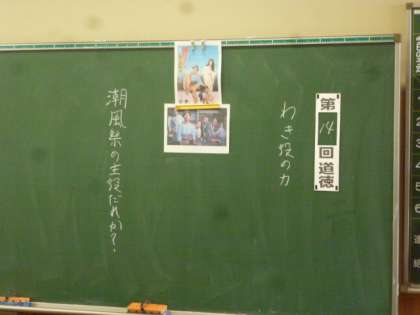 第14回道徳
わき役の力
潮風祭の主役だれか?